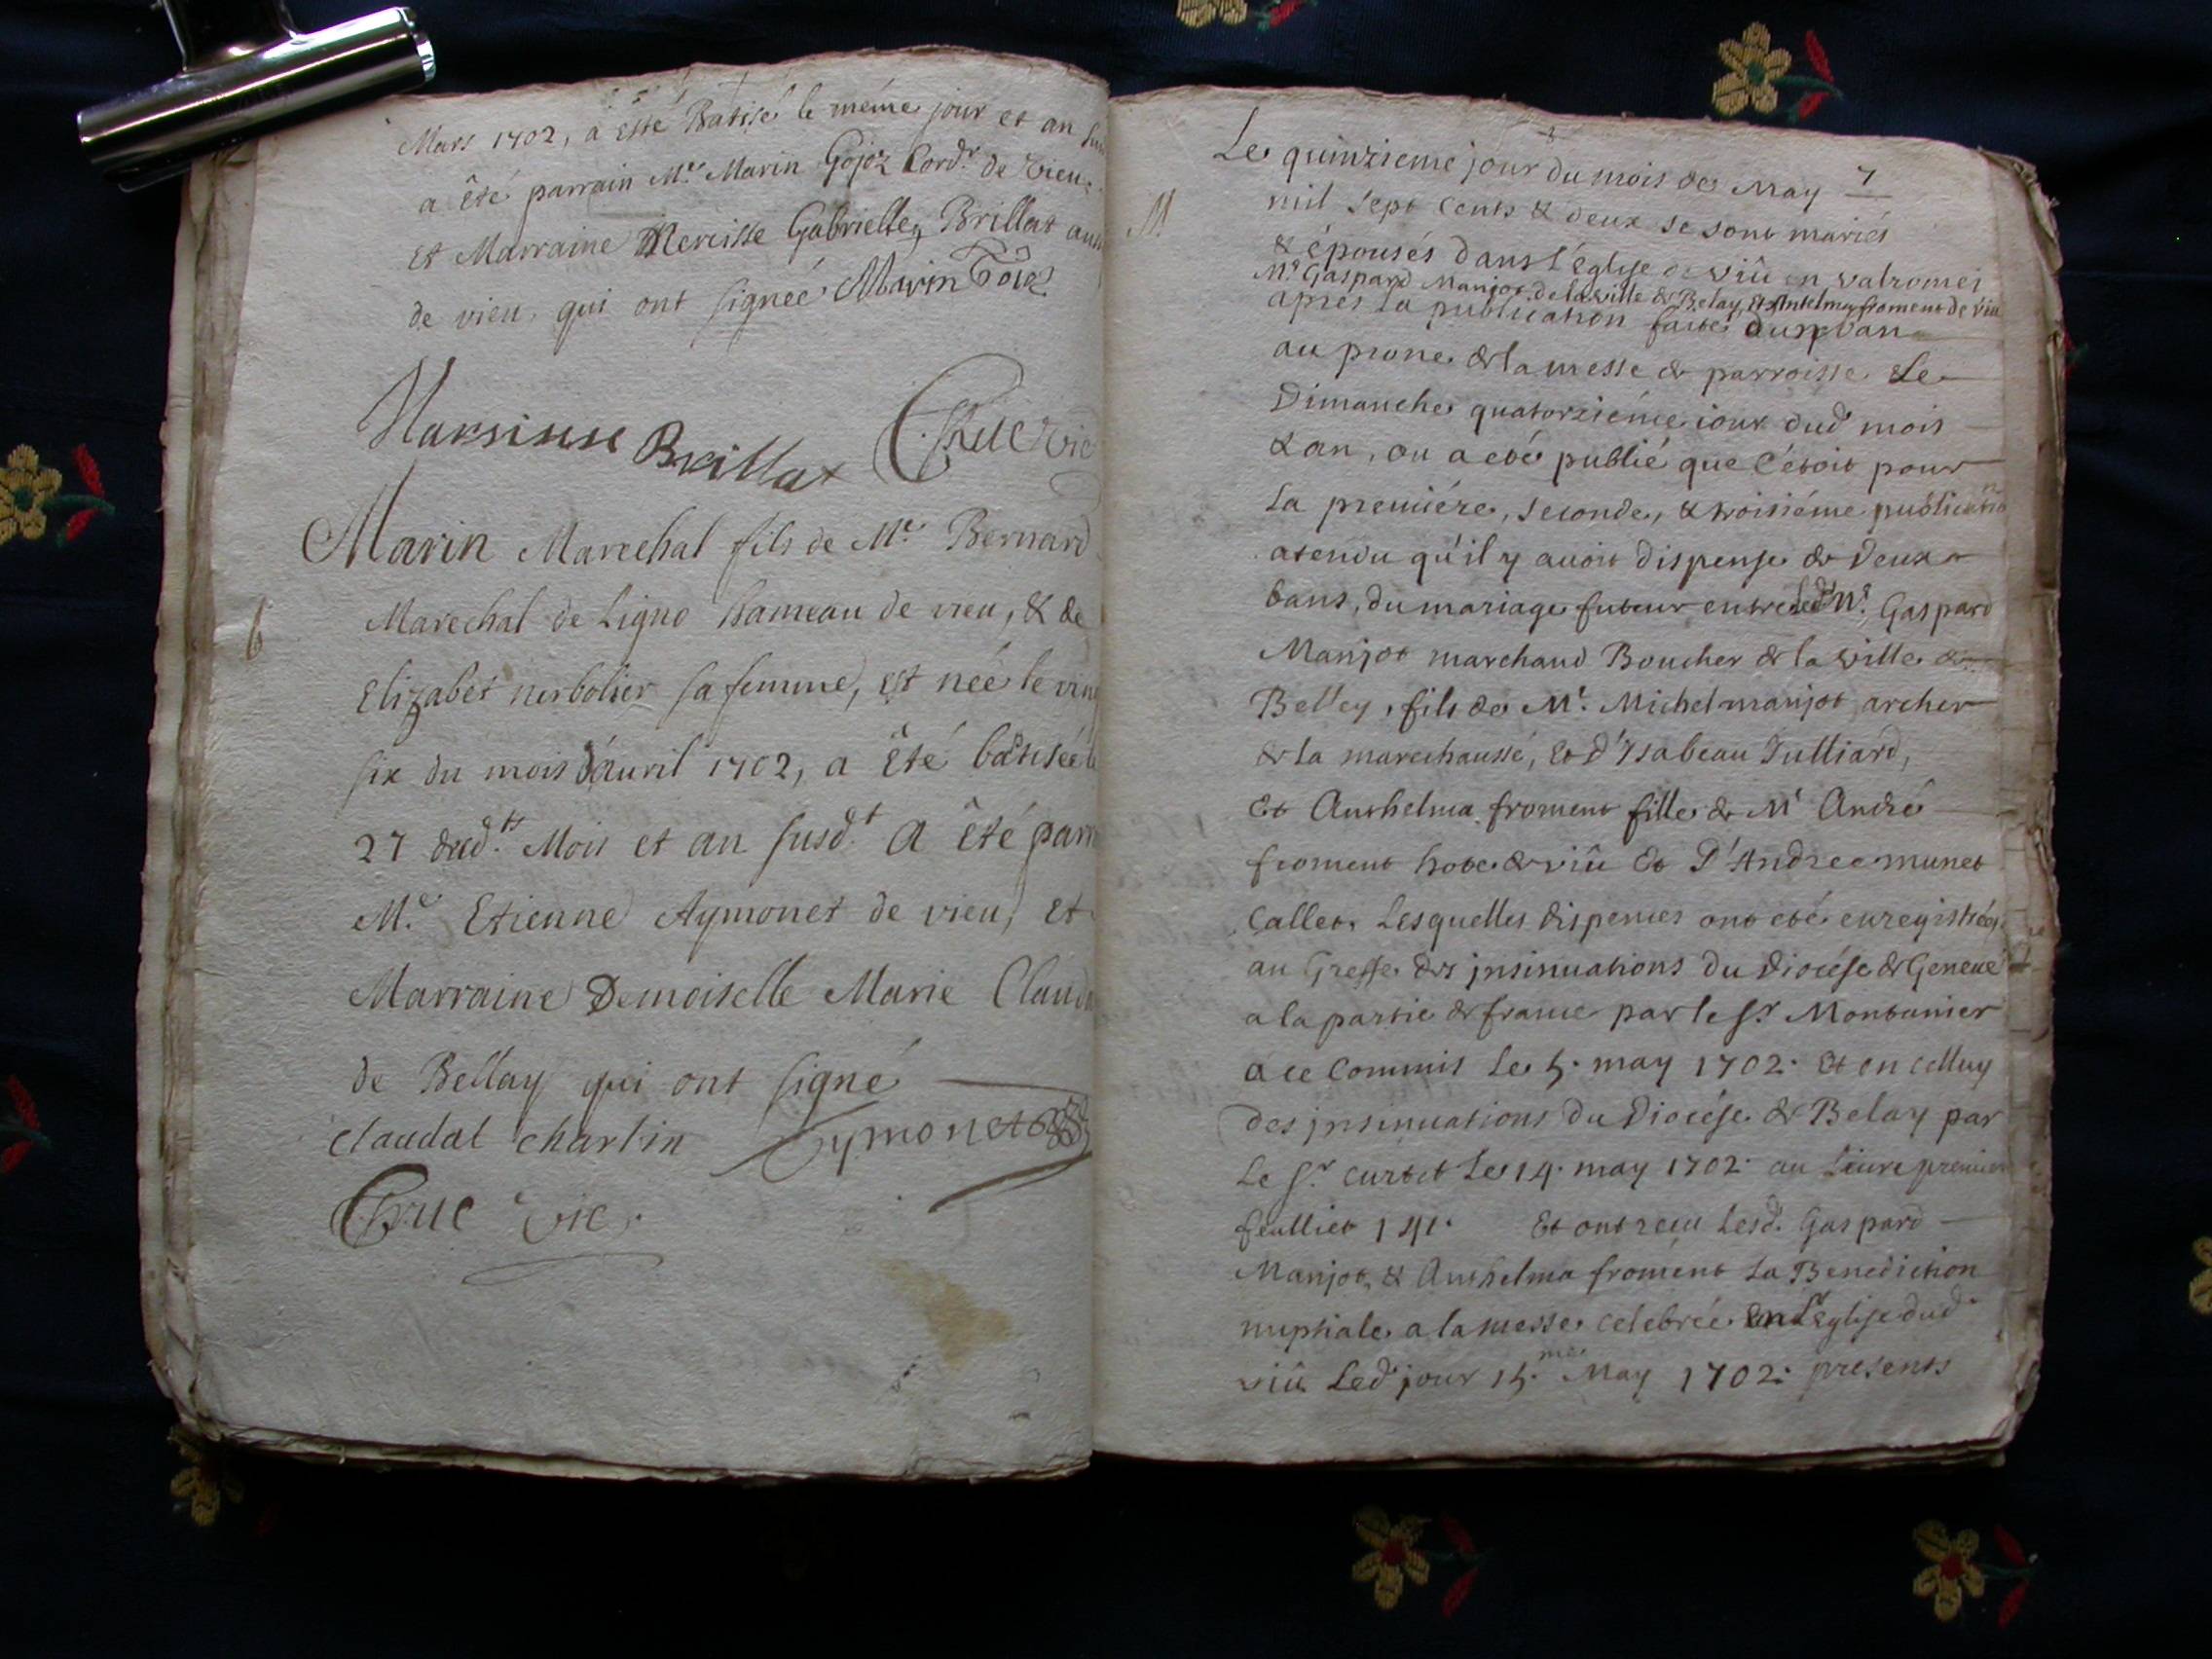 Mars 1702, a esté Batisé le méme jour et an
a êté parrain Mr. Marin Gojoz Cordr. de vieu
et Marraine Gabrielle Brillat
de vieu, qui ont signeé Marin Goioz
Brillat Chue vic
Marin Marechal fils de Mr. Bernard
Marechal de Ligno hameau de vieu, & de
6
Elizabet nerbolier sa femme, est née le
six du mois d'auril 1702, a êté batisée
27 Mois et an susd.t a êté
Mr. Etienne Aymonet de vieu, et
Marraine Demoiselle Marie
de Bellay qui ont signé
claudat charlin Aymonet
Chue vic.
Le quinzieme jour du mois de May 7
M.
mil sept cents & deux se sont mariés
& épousés dans l'Eglise de viû en valromei
Mr. Gaspard Manjot de la ville de Belay, et Anthelma froment de viu
apres la publication faite d'un ban
au prone de la messe de parroisse Le
Dimanche quatorziéme iour dud mois
& an, ou a eté publié que c'étoit pour
La premiére, seconde, & troisiéme
atendu qu'il y auoit dispense de deux
bans, du mariage futeur entre led Mr. Gaspard
Manjot marchand Boucher de la ville de
Belley, fils de Mr. Michel manjot archer
de la marechaussé, et d'Ysabeau Julliard,
Et Anthelma froment fille de Mr André
froment hote de viû Et D'Andree munet
Callet. Lesquelles dispenses ont eté enregistrées
au Greffe des insinuations du Diocése de Geneue
a la partie de france par le sr. Montanier
a ce Commis Le 5. may 1702. Et en celluy
des insinuations du Diocése de Belay par
Le sr. Curtet Le 14. may 1702. au Liure premier
feulliet 141. Et ont receu Lesd. Gaspard
Manjot & Anthelma froment La Benediction
nuptiale a la messe celebrée en L'eglise dud
viû Led jour 15.me May 1702. presents